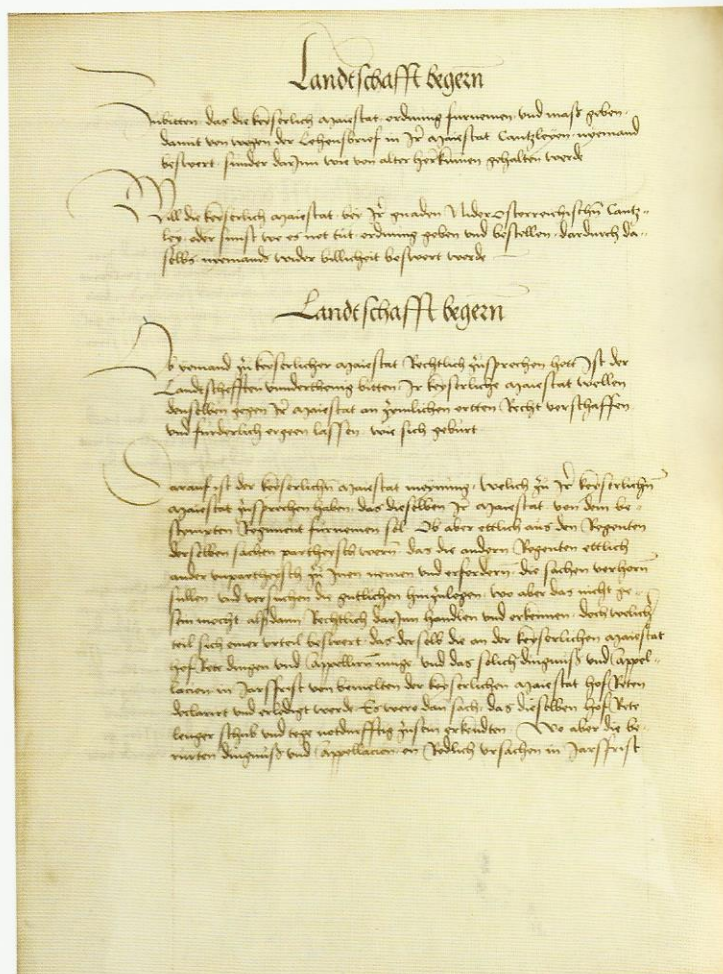 Landtschafft begern
Zubitten das die keyserlich Maiestat ordnung furnemen vnd mass geben
damit von wegen der Lehensbrief in Ir Maiestat Cantzleyen nyemand
beswert sunder darInn wie von alter herkumen gehalten werde
Will die keyserlich Maiestat bey Ir gnaden NiderOsterreichischn Cantz-
ley oder sunst wo es not tut ordnung geben vnd bestellen dardurch da-
selbs nyemands wider billicheit beswert werde
Landtschafft begern
Ob yemand zu keyserlicher Maiestat Rechtlich zusprechen hett Ist der
Landtschefften vnndertheinig bitten Ir keyserliche Maiestat wellen
denselben gegen Ir Maiestat an zymlichen ortten Recht verschaffen
vnd furderlich ergeen lassen wie sich geburt
Darauf ist der keyserlichn Maiestat meynung Welich zu Ir keyserlichn
Maiestat zusprechen haben das dieselben Ir Maiestat vor dem be-
stympten Regiment furnemen sol Ob aber ettlich aus den Regenten
derselben sachen partheysch wern das die andern Regenten ettlich
ander vnpartheysch zu Inen nemen vnd erfordern die sachen verhorn
sullen vnd versuchen die guttlichen hinzulegen wo aber das nicht ge-
sein mocht alssdann Rechtlich darInn handlen vnd erkennen doch welich
teil sich einer vrteil beswert das derselb die an der keyserlichen Maiestat
hof Rete dingen vnd Appellirn muge vnd das solich dingnuss vnd Appel-
lacion in Jarssfrist von bemelten der keyserlichen Maiestat hof Reten
declarirt vnd erledigt werde Es were dan sach das dieselben hof Rete
lenger schub vnd tege notdurfftig zusein erkendten Wo aber die be-
rurten dingnuss vnd Appellacion on Redlich vrsachen in Jarssfrist